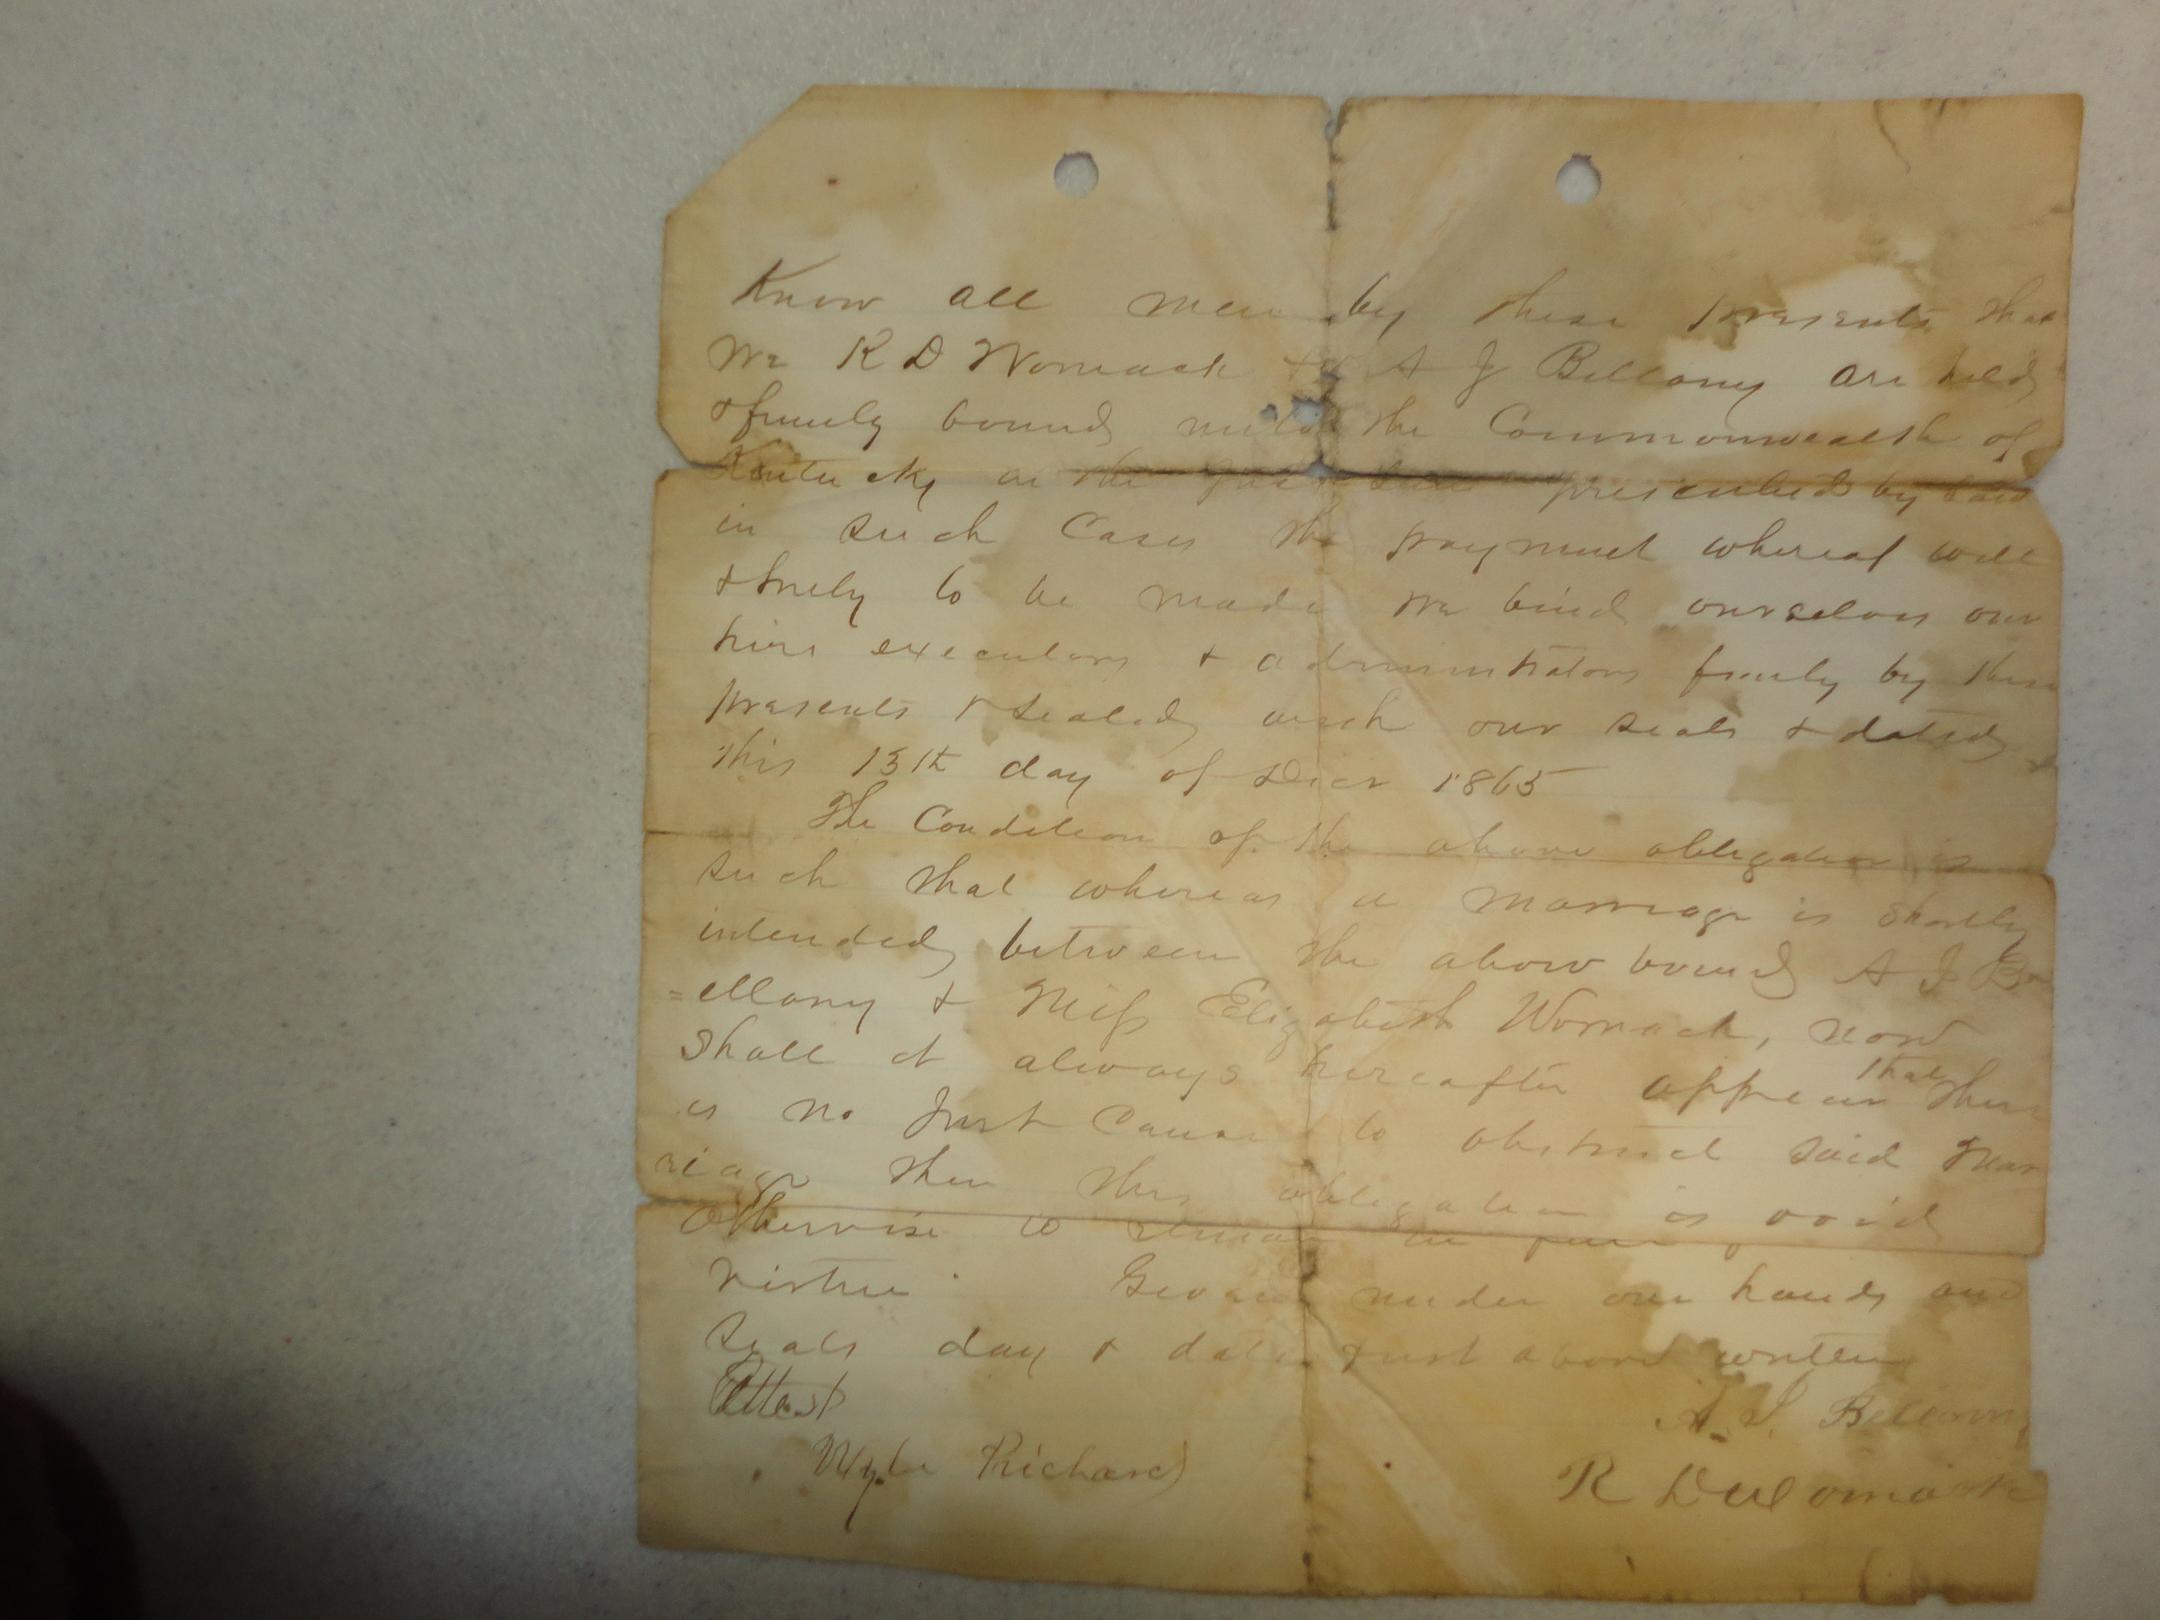 Know all men by these presents that
We R D Womack & A J Bellamy are held
& firmly bound unto the Commonwealth of
Kentucky in the prescribed by law
in such Cases the payment whereof well
& truly to be made we bind ourselves our
hirs executors & administrators firmly by these
presents & sealed with our seals & dated
this 13th day of Decr 1865
The Condition of the above obligation is
such that whereas a marriage is shortly
intended between the above bound A J Be
=llamy & Miss Elizabeth Womack, now
Shall it always hereafter appear that there
is no Just Cause to obstruct said mar
riage then this obligation is void
Otherwise to remain in full
virtue Given under our hands and
Seals day & date first above written
Attest
Richard
A. J. Bellamy
R D Womack